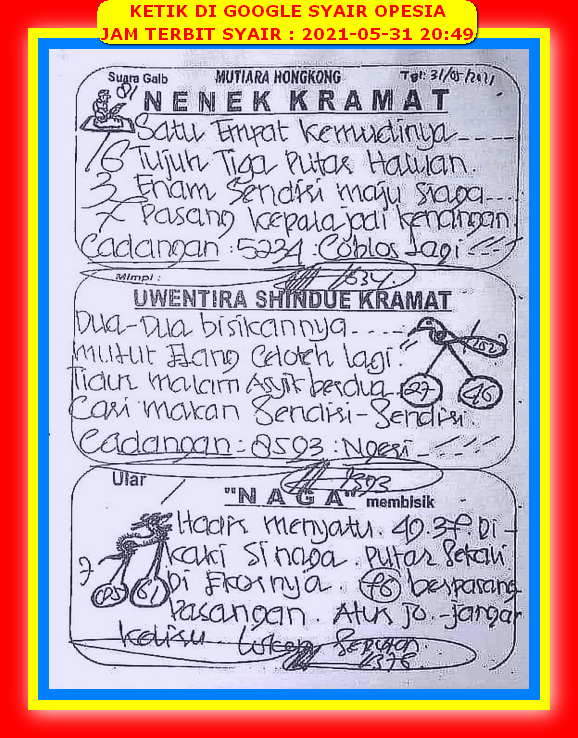 KETIK DI GOOGLE SYAIR OPESIA
JAM TERBIT SYAIR : 2021-05-31 20:49
Suara Gaib MUTIARA HONGKONG Tgl: 31/05/2021
81
NENEK KRAMAT
Satu Empat kemudinya ----
16 Tujuh Tiga Putar Haluan.
3 Enam Sendiri maju siaga ---
7 Pasang kepala jadi kenangan
Cadangan : 5234 : Coblos Lagi
Mimpi : 1634.
UWENTIRA SHINDUE KRAMAT
Dua-Dua bisikannya ----
mulut Elang Celoteh lagi.
Tidur malam Asyik berdua
27 46
Cari makan Sendiri-Sendiri.
Cadangan : 8593 : Ngeri -
1393
Ular
"NAGA" membisik
Hadir menyatu. 49.37. Di -
kaki Sinaga. Putar Sekali
7
Di Ekornya. 46 berpasang
61
Pasangan. Atur jo. -jangan
keliru
1376